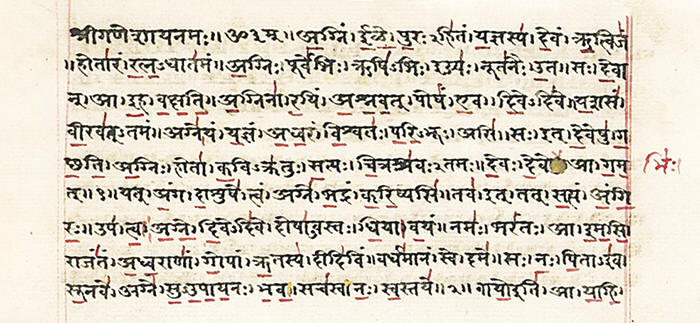 श्रीगणेशायनमः॥ॐ३म्॥अग्निं।ईळे।पुरः२हितं।यज्ञस्य।देवं।ऋत्विजं
॥होतारं।रत्न२धातमं॥अग्निः।पूर्वेभिः।ऋषिभिः।ईड्यः।नूतनैः।उत॥सः।देवा
न्।आ।इह।वक्षति॥अग्निना।रयिं।अश्नवत्।पोषं।एव।दिवे२दिवे॥यशसं
वीरवत्२तमं॥अग्ने।यं।यज्ञं।अध्वरं।विश्वतः।परि२भूः।असि॥सः।इत्।देवेषु।ग
च्छति॥अग्निः।होता।कवि२क्रतुः।सत्यः।चित्रश्रवः२तमः॥देवः।देवे आ।गम भिः।
त्॥१॥यत्।अंग।दाशुषे।त्वं।अग्ने।भद्रं।करिष्यसि॥तव।इत्।तत्।सत्यं।अंगि
रः॥उप।त्वा।अग्ने।दिवे२दिवे।दोषा२वस्तः।धिया।वयं॥नमः।भरंतः।आ।इमसि॥
राजंतं।अध्वराणां।गोपां।ऋतस्य।दीदिविं॥वर्धमानं।स्वे।दमे॥सः।नः।पिता२इव
सूनवे।अग्ने।सु२उपायनः।भव॥सचस्व।नः।स्वस्तये॥२॥वायोइति।आ।याहि।